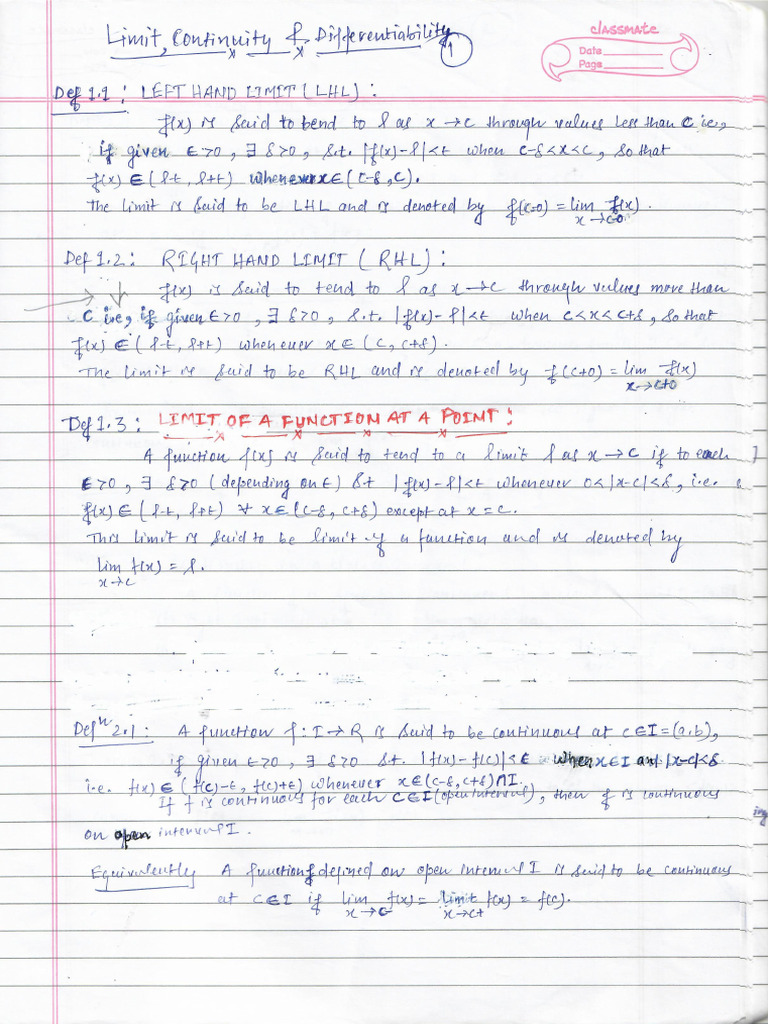 Limit, Continuity & Differentiability
1
classmate
Date
Page
Def 1.1 : LEFT HAND LIMIT (LHL) :
f(x) is said to tend to l as x→c through values less than c i.e.,
if given ϵ>0, ∃ δ>0, s.t. |f(x)-l|<ϵ when c-δ<x<c, so that
f(x) ∈ (l-ϵ, l+ϵ) whenever x∈(c-δ, c).
The limit is said to be LHL and is denoted by f(c-0) = lim f(x).
x→c-0
Def 1.2 : RIGHT HAND LIMIT (RHL) :
f(x) is said to tend to l as x→c through values more than
c i.e., if given ϵ>0, ∃ δ>0, s.t. |f(x)-l|<ϵ when c<x<c+δ, so that
f(x) ∈ (l-ϵ, l+ϵ) whenever x∈(c, c+δ).
The limit is said to be RHL and is denoted by f(c+0) = lim f(x)
x→c+0
Def 1.3 : LIMIT OF A FUNCTION AT A POINT :
A function f(x) is said to tend to a limit l as x→c if to each
ϵ>0, ∃ δ>0 (depending on ϵ) s.t |f(x)-l|<ϵ whenever 0<|x-c|<δ, i.e.
f(x) ∈ (l-ϵ, l+ϵ) ∀ x∈(c-δ, c+δ) except at x=c.
This limit is said to be limit of a function and is denoted by
lim f(x) = l.
x→c
Defⁿ 2.1 : A function f : I→R is said to be continuous at c∈I=(a,b),
if given ϵ>0, ∃ δ>0 s.t. |f(x)-f(c)|<ϵ when x∈I and |x-c|<δ
i.e. f(x) ∈ (f(c)-ϵ, f(c)+ϵ) whenever x∈(c-δ, c+δ)∩I.
If f is continuous for each c∈I (open interval), then f is continuous
on open interval I.
Equivalently A function f defined on open interval I is said to be continuous
at c∈I if lim f(x) = limit f(x) = f(c).
x→c- x→c+